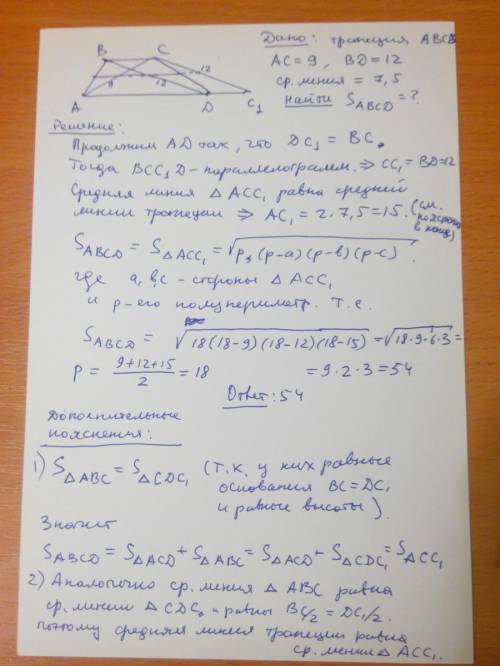 Дано: трапеция ABCD
AC = 9, BD = 12
ср. линия = 7,5
Найти S_ABCD = ?
B C
12
9 12
A D C₁
Решение:
Продолжим AD так, что DC₁ = BC.
Тогда BCC₁D – параллелограмм. ⇒ CC₁ = BD = 12
Средняя линия △ ACC₁ равна средней
линии трапеции ⇒ AC₁ = 2·7,5 = 15. (см. пояснение в конце)
S_ABCD = S_△ACC₁ = √(p(p-a)(p-b)(p-c)),
где a, b, c – стороны △ ACC₁
и p – его полупериметр. Т.е.
S_ABCD = √(18(18-9)(18-12)(18-15)) = √(18·9·6·3) =
p = (9+12+15)/2 = 18 = 9·2·3 = 54
Ответ: 54
Дополнительные
пояснения:
1) S_△ABC = S_△CDC₁ (т.к. у них равные
основания BC = DC₁
и равные высоты).
Значит
S_ABCD = S_△ACD + S_△ABC = S_△ACD + S_△CDC₁ = S_ACC₁
2) Аналогично ср. линия △ ABC равна
ср. линии △ CDC₁ и равны BC/2 = DC₁/2.
поэтому средняя линия трапеции равна
ср. линии △ ACC₁.